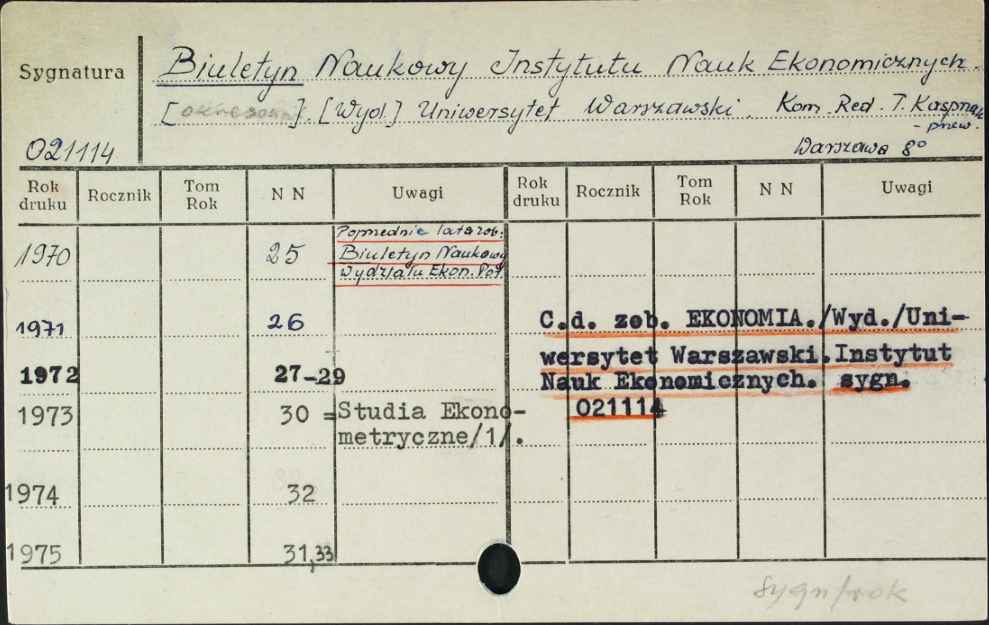 Sygnatura
Biuletyn Naukowy Instytutu Nauk Ekonomicznych.
[Wyd.] Uniwersytet Warszawski. Kom. Red. T. Kasprzak
- przew.
021114
Warszawa 8°
Rok druku Rocznik Tom Rok N N Uwagi Rok druku Rocznik Tom Rok N N Uwagi
Poprzednie lata zob:
1970 25 Biuletyn Naukowy
Wydziału Ekon. Pol.
1971 26 C.d. zob. EKONOMIA./Wyd./Uni-
wersytet Warszawski.Instytut
1972 27-29 Nauk Ekonomicznych. sygn.
1973 30 =Studia Ekono- 021114
metryczne/1/.
1974 32
1975 31,33
sygn/rok